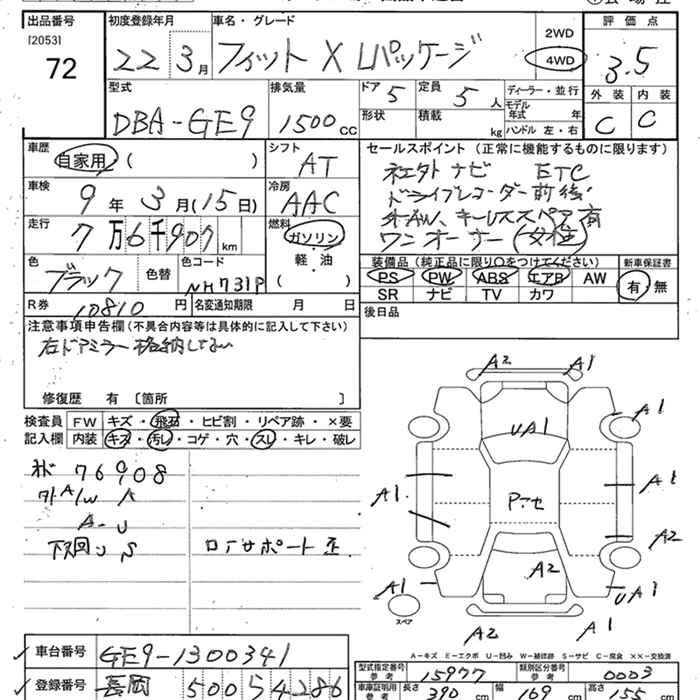 出品番号 初度登録年月 車名・グレード 2WD 評価点
[2053] 72 22 3月 フィット X Lパッケージ 4WD 3.5
型式 排気量 ドア 5 定員 5人 ディーラー・並行 外装 内装
DBA-GE9 1500cc 形状 積載 kg モデル年式 年 C C
ハンドル 左・右
車歴 自家用 ( ) シフト AT セールスポイント (正常に機能するものに限ります)
社外ナビ ETC
車検 9年 3月 (15日) 冷房 AAC ドライブレコーダー前後
走行 7万6千907km 燃料 ガソリン 社外AW、キーレススペア有
軽・油 ワンオーナー (女性)
( ) 装備品 (純正品に限り○をつけてください) 新車保証書
色 ブラック 色替 色コード NH731P PS PW ABS エアB AW 有・無
SR ナビ TV カワ
R券 10810円 名変通知期限 月 日 後日品
注意事項申告欄(不具合内容等は具体的に記入して下さい)
右ドアミラー格納しない
修復歴 有 〔箇所 〕
検査員 FW キズ・飛石・ヒビ割・リペア跡・×要
記入欄 内装 キズ・汚し・コゲ・穴・スレ・キレ・破レ
76908
A/W A
A-U
下回U S ロアサポート歪
A2 A1
UA1 A1
A1 P-セ A1
A2
A1 A2 UA1
スペア
A2 A1
A-キズ E-エクボ U-凹み W-補修跡 S-サビ C-腐食 XX-交換済
車台番号 GE9-1300341 型式指定番号 参考 15977 類別区分番号 参考 0003
登録番号 長岡 500 さ 4286 車庫証明用 参考 長さ 390cm 幅 169cm 高さ 155cm